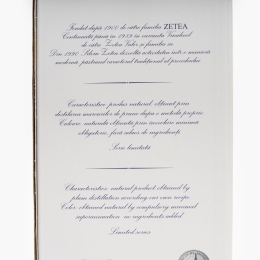 Fondat după 1900 de către familia ZETEA
Continuată până în 1959 în comuna Vinulecd
de către Zetea Valer și familia sa
Din 1990 Silviu Zetea dezvoltă activitatea într-o manieră
modernă, păstrând caracterul tradițional al procedeului
Caracteristic: produs natural, obținut prin
distilarea marcului de prune după o metodă proprie
Culoare: naturală obținută prin învechire minimă
obligatorie, fără adaos de ingrediente
Serie limitată
Characteristics: natural product obtained by
plum distillation according our own recipe
Color: obtained natural by compulsory maximal
superannuation no ingredients added
Limited series